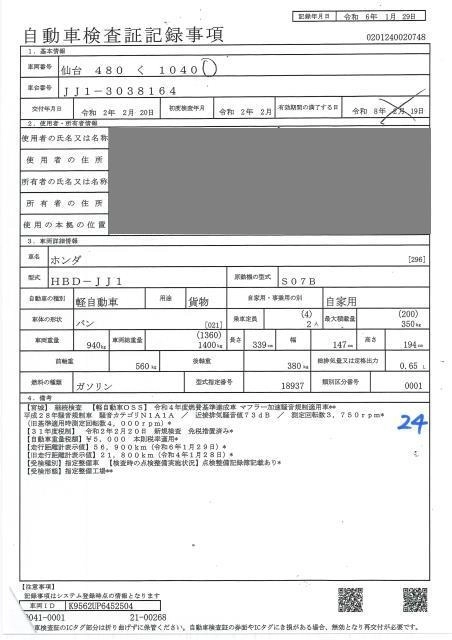 記録年月日 令和 6年 1月 29日
自動車検査証記録事項
0201240020748
1．基本情報
車両番号 仙台 480 く 1040
車台番号 JJ1-3038164
交付年月日 令和 2年 2月 20日 初度検査年月 令和 2年 2月 有効期間の満了する日 令和 8年 2月 19日
2．使用者・所有者情報
使用者の氏名又は名称
使用者の住所
所有者の氏名又は名称
所有者の住所
使用の本拠の位置
3．車両詳細情報
車名 ホンダ [296]
型式 HBD-JJ1 原動機の型式 S07B
自動車の種別 軽自動車 用途 貨物 自家用・事業用の別 自家用
車体の形状 バン [021] 乗車定員 (4) 2人 最大積載量 (200) 350kg
車両重量 940kg 車両総重量 (1360) 1400kg 長さ 339cm 幅 147cm 高さ 194cm
前軸重 560kg 後軸重 380kg 総排気量又は定格出力 0.65 L
燃料の種類 ガソリン 型式指定番号 18937 類別区分番号 0001
4．備考
[宮城] 継続検査 【軽自動車OSS】 令和4年度燃費基準達成車 マフラー加速騒音規制適用車**
平成28年騒音規制車 騒音カテゴリN1A1A ／ 近接排気騒音値73dB ／ 測定回転数3，750rpm*
(旧基準適用時測定回転数4，000rpm)*
[31年度税制] 令和2年2月20日 新規検査 免税措置済み*
[自動車重量税額] ¥5，000 本則税率適用*
[走行距離計表示値] 56，900km (令和6年1月29日)*
[旧走行距離計表示値] 21，800km (令和4年1月28日)*
[受検種別] 指定整備車 [検査時の点検整備実施状況] 点検整備記録簿記載あり*
[受検形態] 指定整備工場**
24
【注意事項】
記録事項はシステム登録時点の情報となります
車両ID K9562UP6452504
0041-0001 21-00268
車検査証のICタグ部分は折り曲げずに保管ください。自動車検査証の券面やICタグにき損がある場合、無効となり再交付が必要です。